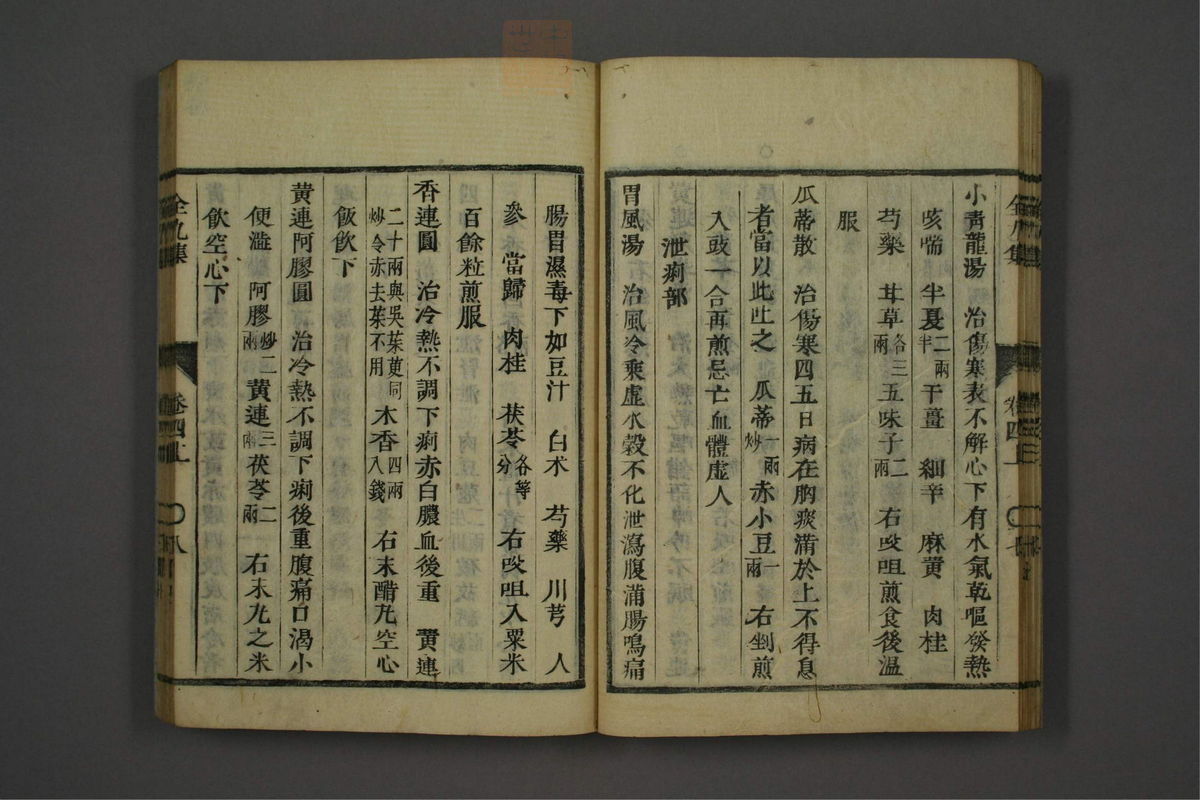 小青龍湯 治傷寒表不解心下有水氣乾嘔發熱
咳喘 半夏二兩半 干薑 細辛 麻黃 肉桂
芍藥 甘草各三兩 五味子二兩 右㕮咀煎食後溫
服
瓜蒂散 治傷寒四五日病在胸痰滿於上不得息
者當以此吐之 瓜蒂一兩炒 赤小豆一兩 右剉煎
入豉一合再煎忌亡血體虛人
泄痢部
胃風湯 治風冷乘虛水穀不化泄瀉腹滿腸鳴痛
腸胃濕毒下如豆汁 白朮 芍藥 川芎 人
參 當歸 肉桂 茯苓各等分 右㕮咀入粟米
百餘粒煎服
香連圓 治冷熱不調下痢赤白膿血後重 黃連
二十兩與吳茱萸同炒令赤去茱不用 木香四兩八錢 右末醋丸空心
飯飲下
黃連阿膠圓 治冷熱不調下痢後重腹痛口渴小
便澁 阿膠炒二兩 黃連三兩 茯苓二兩 右末丸之米
飲空心下
卷四上
八